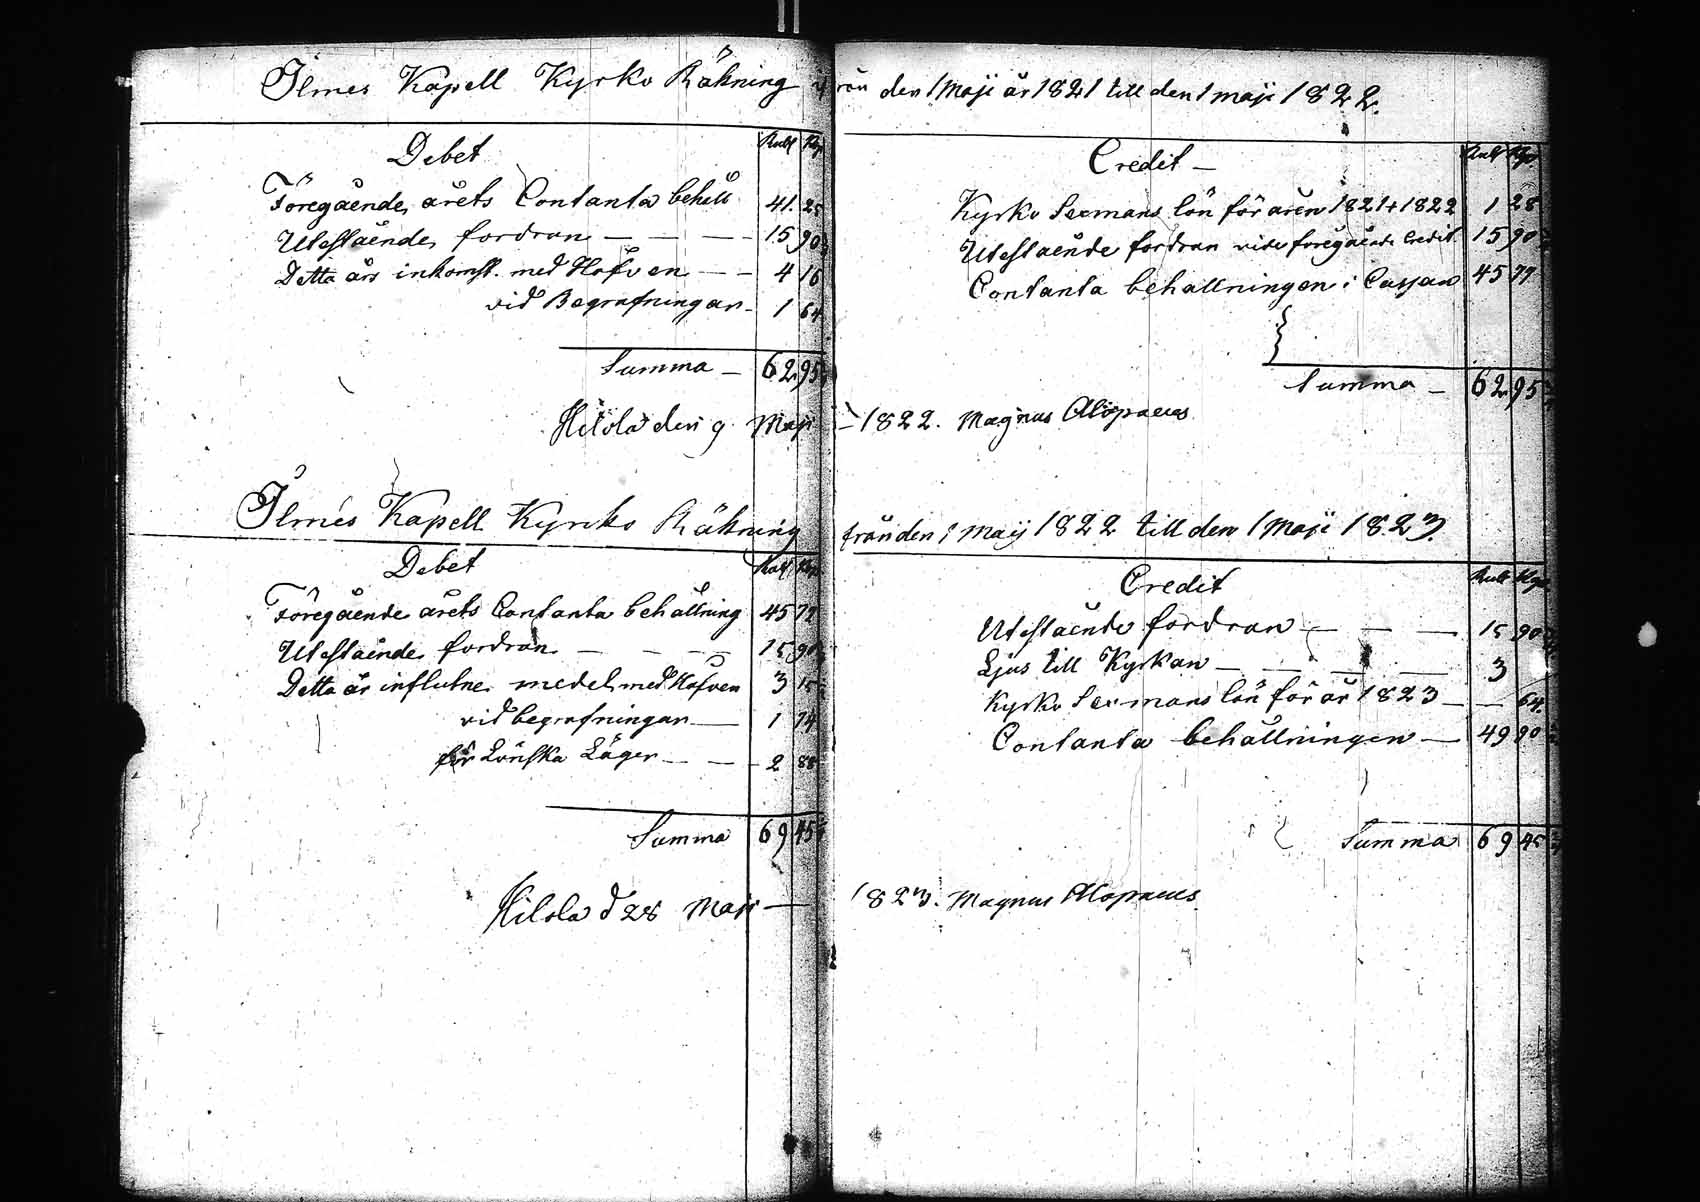 Ilmés Kapell Kyrko Räkning från den 1 Maji år 1821 till den 1 maji 1822.
Debet
Rubl Kop
Föregående årets Contanta behåll 41. 25
Utestående fordran — — — 15 90
Detta års inkomst. med Håfven — — 4 16
vid Begrafningar — 1 64
Summa — 62 95
Credit —
Rubl Kop
Kyrko Sexmans lön för åren 1821 + 1822 1 28
Utestående fordran vide föregående Credit 15 90
Contanta behållningen i Cassan 45 77
Summa — 62 95
Hitola den 9 Maji — 1822. Magnus Alopaeus
Ilmés Kapell Kyrko Räkning från den 1 Maij 1822 till den 1 Maji 1823.
Debet
Rubl Kop
Föregående årets Contanta behållning 45 77
Utestående fordran — — — 15 90
Detta år influtne medel med Håfven 3 15
vid begrafningar — 1 74
för Lönska Läger — — 2 88
Summa 69 45
Credit
Rubl Kop
Utestående fordran — — — 15 90
Ljus till Kyrkan — — — — 3
Kyrko Sexmans lön för år 1823 — — 64.
Contanta behållningen — 49 90
Summa 69 45
Hitola d 28 Maji — 1823. Magnus Alopaeus